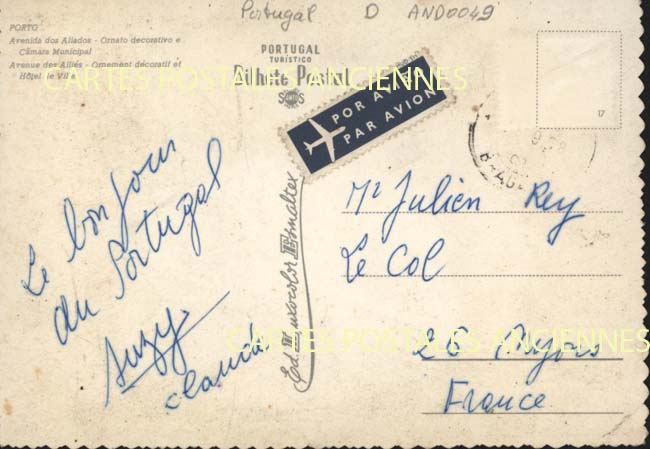 Portugal D AND0049
PORTO
Avenida dos Aliados - Ornato decorativo e
Câmara Municipal
Avenue des Alliés - Ornement décoratif et
Hôtel de Ville
PORTUGAL
TURÍSTICO
Bilhete Postal
CARTES POSTALES ANCIENNES
POR AVIÃO
PAR AVION
17
Le bonjour
du Portugal
Suzy
Claude
Ed. Luxocolor Esmaltex
Mr Julien Rey
Le Col
26 Pizors
France
CARTES POSTALES ANCIENNES